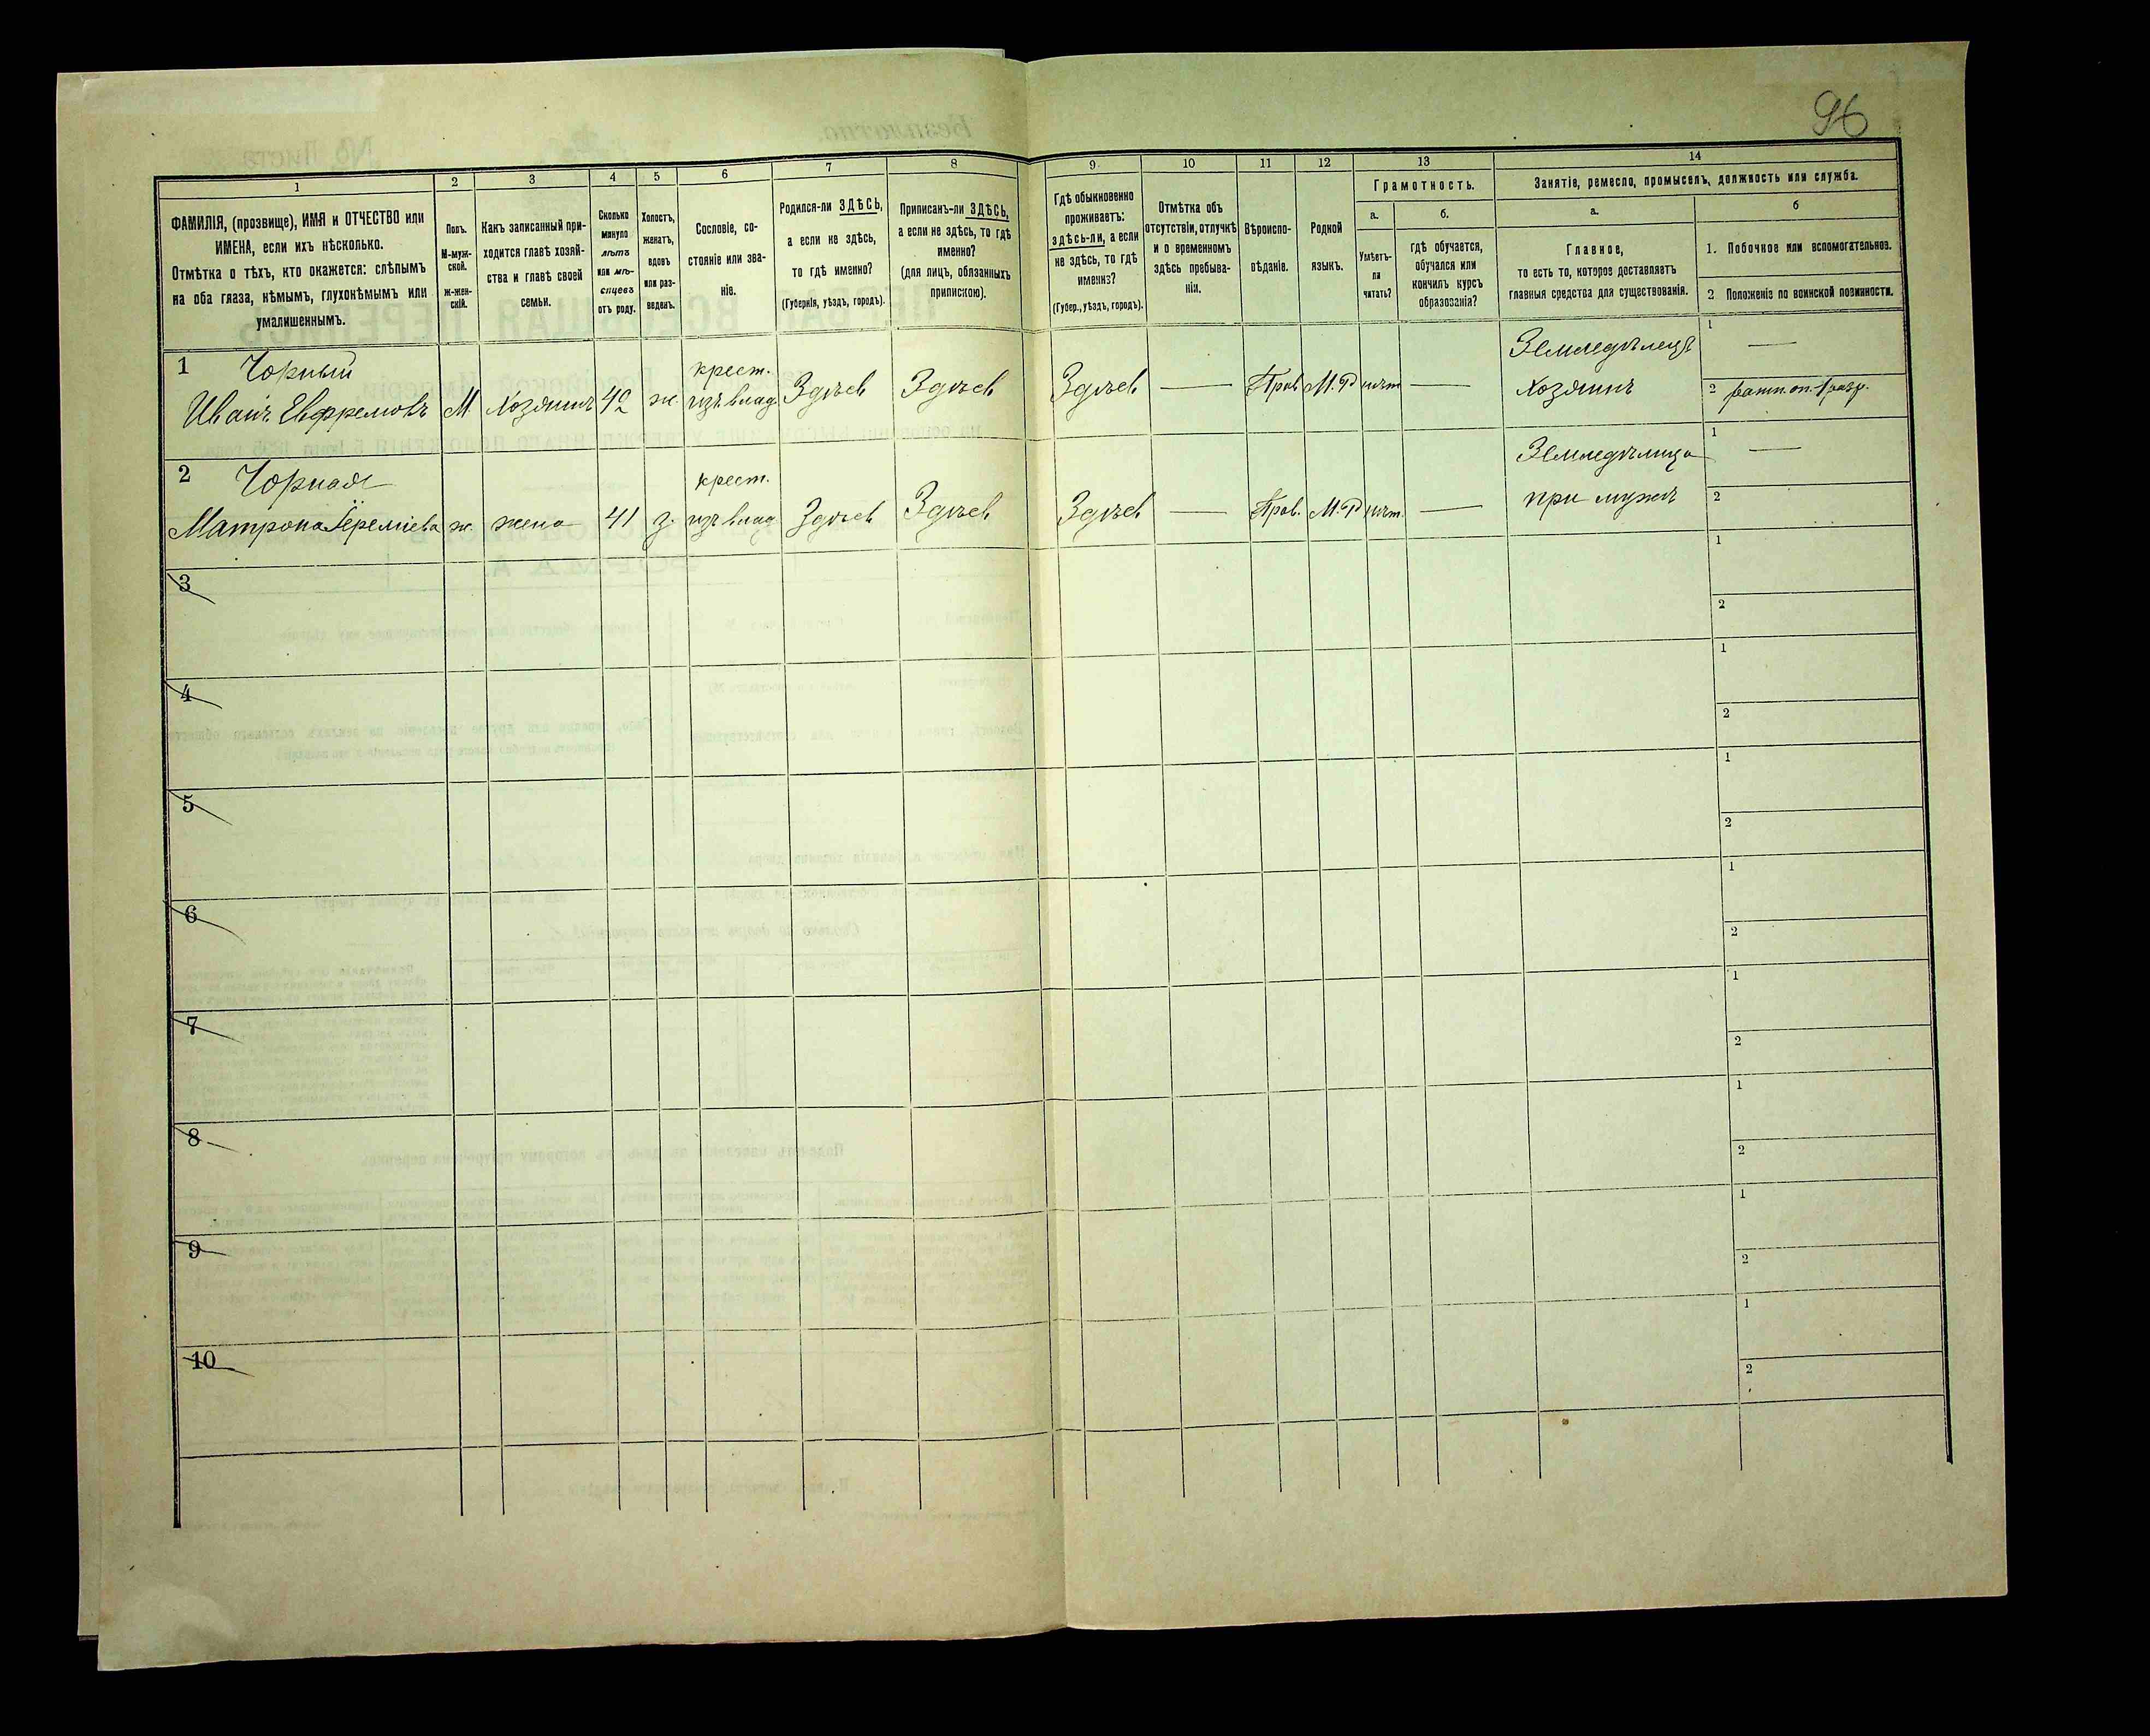 96
1 2 3 4 5 6 7 8 9 10 11 12 13 14
ФАМИЛІЯ, (прозвище), ИМЯ и ОТЧЕСТВО или
ИМЕНА, если ихъ нѣсколько.
Отмѣтка о тѣхъ, кто окажется: слѣпымъ
на оба глаза, нѣмымъ, глухонѣмымъ или
умалишеннымъ.
Полъ.
М-муж-
ской.
ж-жен-
скій.
Какъ записанный при-
ходится главѣ хозяй-
ства и главѣ своей
семьи.
Сколько
минуло
лѣтъ
или мѣ-
сяцевъ
отъ роду.
Холостъ,
женатъ,
вдовъ
или раз-
веденъ.
Сословіе, со-
стояніе или зва-
ніе.
Родился-ли ЗДѢСЬ,
а если не здѣсь,
то гдѣ именно?
(Губернія, уѣздъ, городъ).
Приписанъ-ли ЗДѢСЬ,
а если не здѣсь, то гдѣ
именно?
(для лицъ, обязанныхъ
припискою).
Гдѣ обыкновенно
проживаетъ:
здѣсь-ли, а если
не здѣсь, то гдѣ
именно?
(Губер., уѣздъ, городъ).
Отмѣтка объ
отсутствіи, отлучкѣ
и о временномъ
здѣсь пребыва-
ніи.
Вѣроиспо-
вѣданіе.
Родной
языкъ.
Грамотность.
а.
Умѣетъ-
ли
читать?
б.
гдѣ обучается,
обучался или
кончилъ курсъ
образованія?
Занятіе, ремесло, промыселъ, должность или служба.
а.
Главное,
то есть то, которое доставляетъ
главныя средства для существованія.
б
1. Побочное или вспомогательное.
2 Положеніе по воинской повинности.
1 Чорный крест. Земледѣлецъ 1 —
Иванъ Евфремовъ М Хозяинъ 42 ж. изъ влад. Здѣсь Здѣсь Здѣсь — Прав. М.Р нѣт — хозяинъ 2 ратн. оп. 1 разр.
2 Чорная крест. Земледѣлица 1 —
Матрона Іереміева ж. жена 41 з. изъ влад. Здѣсь Здѣсь Здѣсь — Прав. М.Р нѣт. — при мужѣ 2
3 1
2
4 1
2
5 1
2
6 1
2
7 1
2
8 1
2
9 1
2
10 1
2